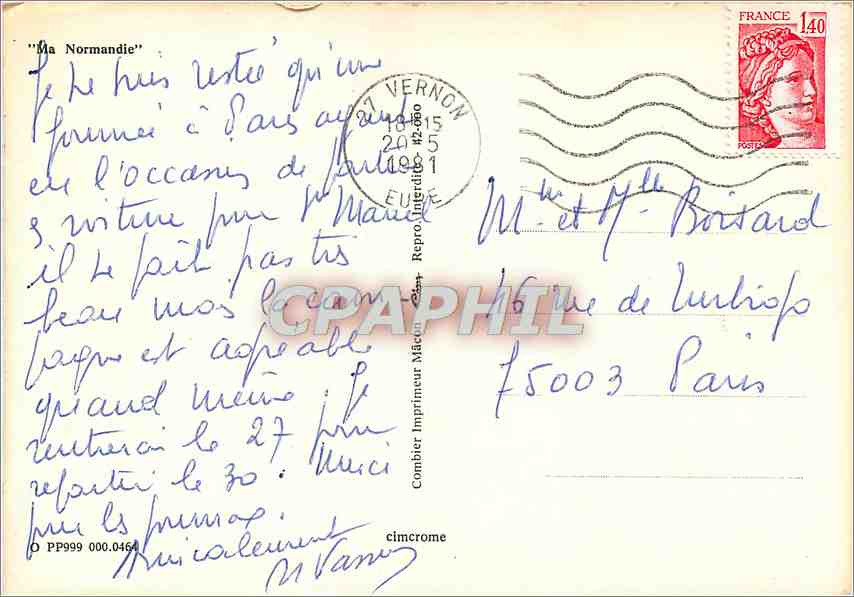 "Ma Normandie"
Je ne suis restée qu'une
journée à Paris ayant
eu l'occasion de
voiture pour St Marcel
il ne fait pas très
beau mais la cam-
pagne est agréable
quand même. Je
rentrerai le 27 pour
repartir le 30. Merci
pour les journaux.
Amicalement
O PP999 000.0464
cimcrome
Combier Imprimeur Mâcon Cim Repro. Interdite - 42-000
27 VERNON
18H15
20-5
1981
EURE
FRANCE
1,40
POSTES
Mme et Mlle Boisard
46 rue de Turbigo
75003 Paris
CPAPHIL